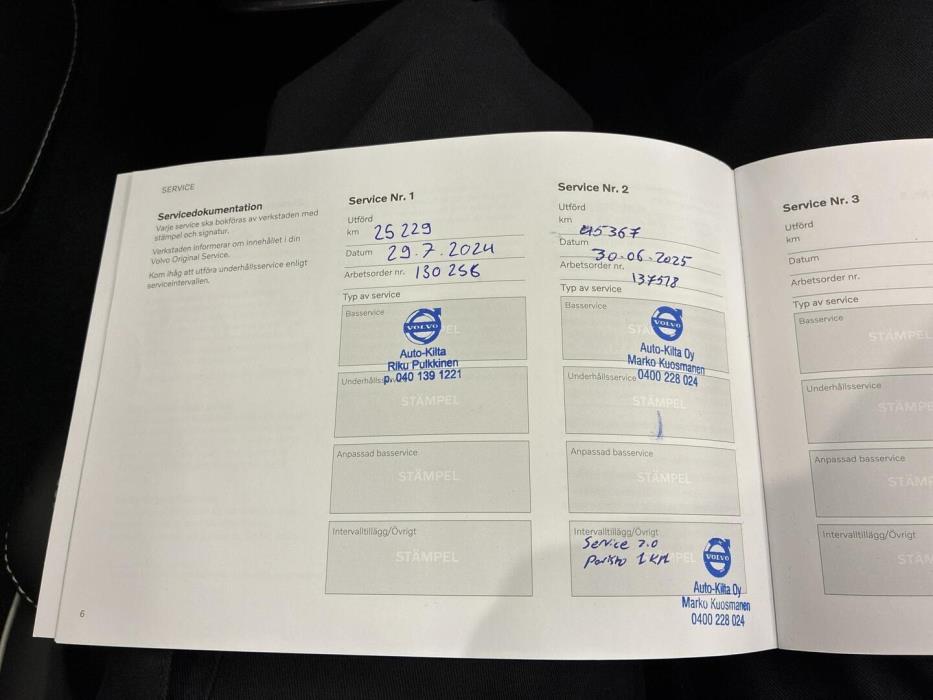 SERVICE
Servicedokumentation
Varje service ska bokföras av verkstaden med
stämpel och signatur.
Verkstaden informerar om innehållet i din
Volvo Original Service.
Kom ihåg att utföra underhållsservice enligt
serviceintervallen.
6
Service Nr. 1
Utförd
km 25 229
Datum 29.7.2024
Arbetsorder nr. 130 256
Typ av service
Basservice
VOLVO
Auto-Kilta
Riku Pulkkinen
p. 040 139 1221
STÄMPEL
Anpassad basservice
STÄMPEL
Intervalltillägg/Övrigt
STÄMPEL
Service Nr. 2
Utförd
km 45367
Datum 30.06.2025
Arbetsorder nr. 137578
Typ av service
Basservice
VOLVO
Auto-Kilta Oy
Marko Kuosmanen
0400 228 024
Underhållsservice
STÄMPEL
Anpassad basservice
STÄMPEL
Intervalltillägg/Övrigt
Service 2.0
Paristo 1 KPL
VOLVO
Auto-Kilta Oy
Marko Kuosmanen
0400 228 024
Service Nr. 3
Utförd
km
Datum
Arbetsorder nr.
Typ av service
Basservice
STÄMPEL
Underhållsservice
STÄMPE
Anpassad basservice
STÄM
Intervalltillägg/Övrigt
STÄM